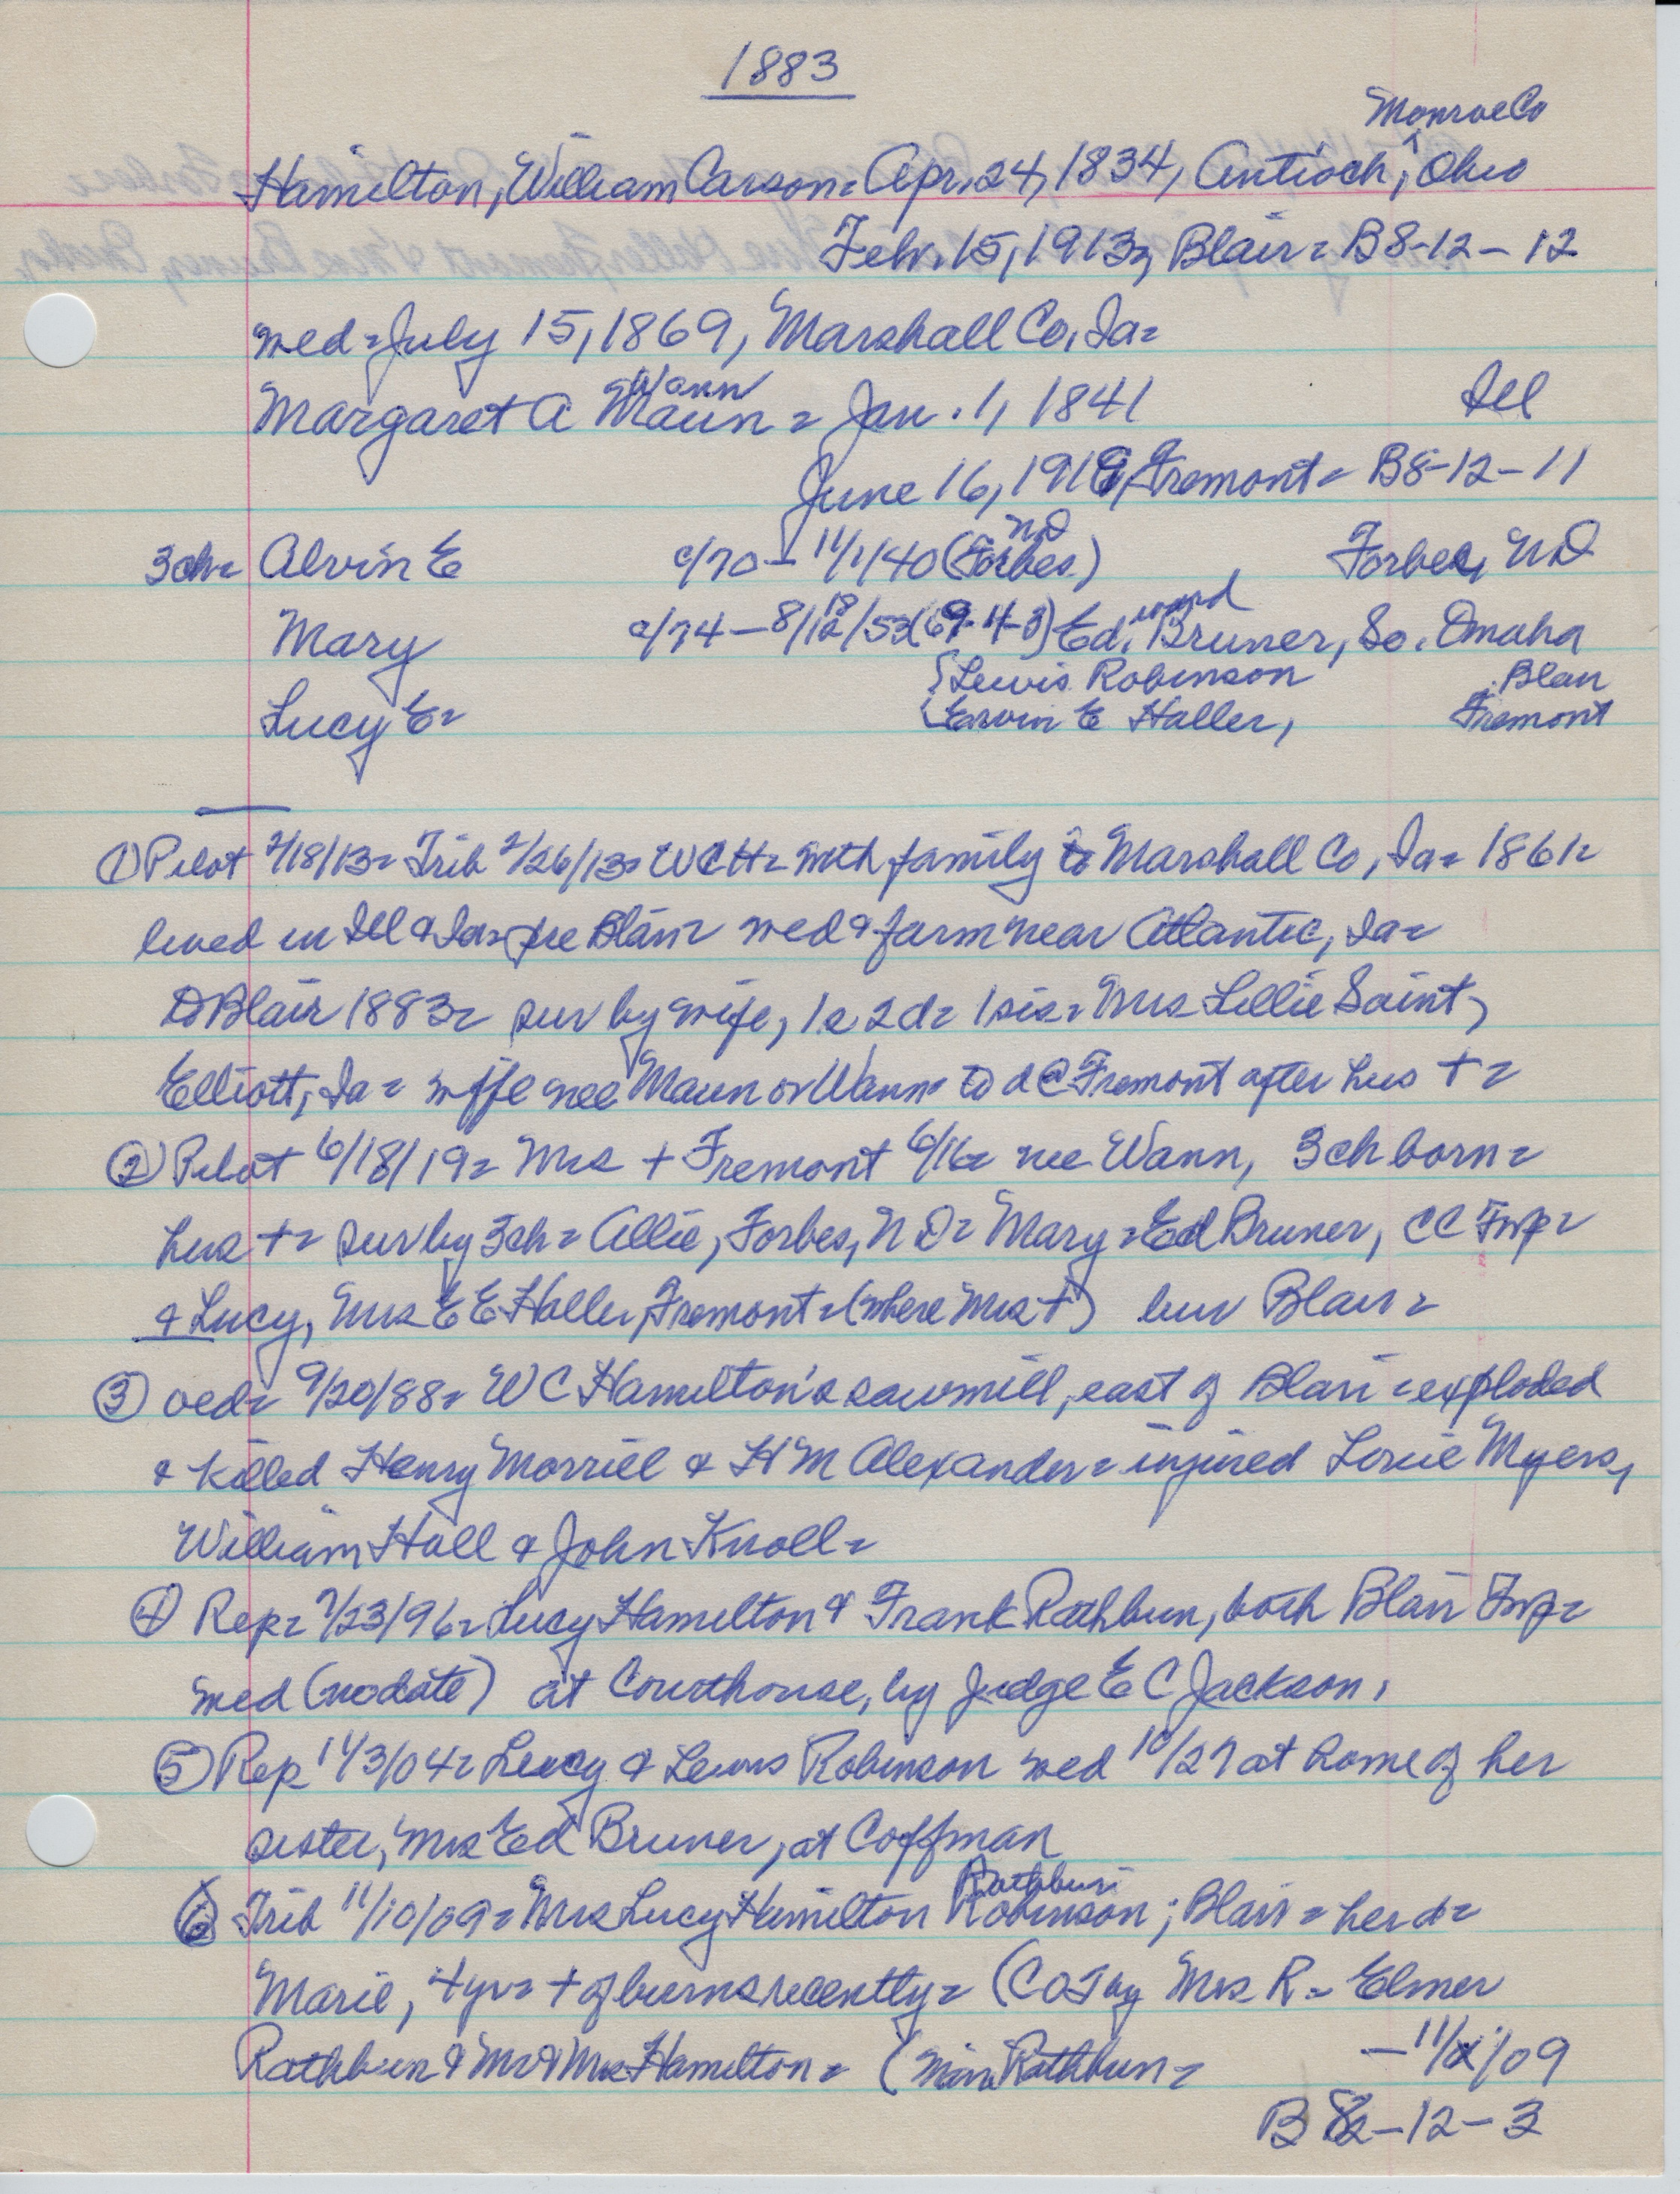 1883
Monroe Co
Hamilton, William Carson = Apr. 24, 1834, Antioch, ^ Ohio
Feb. 15, 1913, Blair = B8-12-12
med = July 15, 1869, Marshall Co, Ia =
Wann
Margaret A Maun = Jan. 1, 1841 Ill
June 16, 1919, Fremont = B8-12-11
3ch = Alvin E c/70 - 11/1/40 (Forbes ND) Forbes, ND
Mary c/74 - 8/18/53 (69-4-3) Edward Bruner, So. Omaha
{Lewis Robinson Blair
Lucy E = {Ervin E Haller, Fremont
① Pilot 2/18/13 = Trib 2/26/13 = WCH = with family to Marshall Co, Ia = 1861 =
lived in Ill & Ia = pre Blair = med & farm near Atlantic, Ia =
to Blair 1883 = sur by wife, 1s 2d = 1 sis = Mrs Lillie Saint,
Elliott, Ia = wife nee Maun or Wann to d @ Fremont after hus + =
② Pilot 6/18/19 = Mrs + Fremont 6/16 = nee Wann, 3 ch born =
hus + = sur by 3ch = Allie, Forbes, ND = Mary = Ed Bruner, CC Twp =
& Lucy, Mrs E E Haller, Fremont = (where Mrs +) bur Blair =
③ oed = 9/20/88 = W C Hamilton's sawmill, east of Blair = exploded
& killed Henry Morriel & H M Alexander = injured Lorie Myers,
William Hall & John Knoll =
④ Rep = 7/23/96 = Lucy Hamilton & Frank Rathbun, both Blair Twp =
med (no date) at Courthouse, by Judge E C Jackson,
⑤ Rep 11/3/04 = Lucy & Lewis Robinson med 10/27 at home of her
sister, Mrs Ed Bruner, at Coffman
Rathbun
⑥ Trib 11/10/09 = Mrs Lucy Hamilton Robinson; Blair = her d =
Marie, 4 yr = + of burns recently = (C of T by Mrs R = Elmer
Rathbun & Mr & Mrs Hamilton = ( Rathbun = - 11/x/09
B 82-12-3